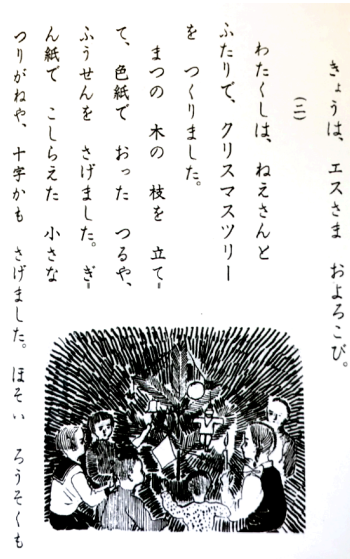 きょうは、エスさま　およろこび。
（二）
わたくしは、ねえさんと
ふたりで、クリスマスツリー
を　つくりました。
まつの　木の　枝を　立て＝
て、色紙で　おった　つるや、
ふうせんを　さげました。ぎ＝
ん紙で　こしらえた　小さな
つりがねや、十字かも　さげました。ほそい　ろうそくも